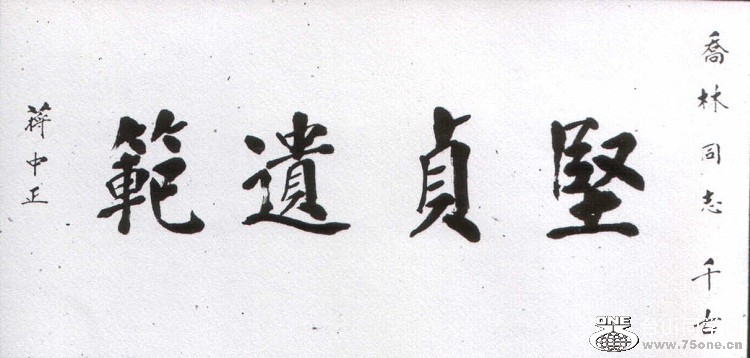 喬林同志 千古
堅貞遺範
蔣中正
ONE
www.75one.cn